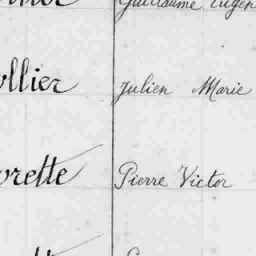 Guillaume Eugen
ollier Julien Marie
orette Pierre Victor